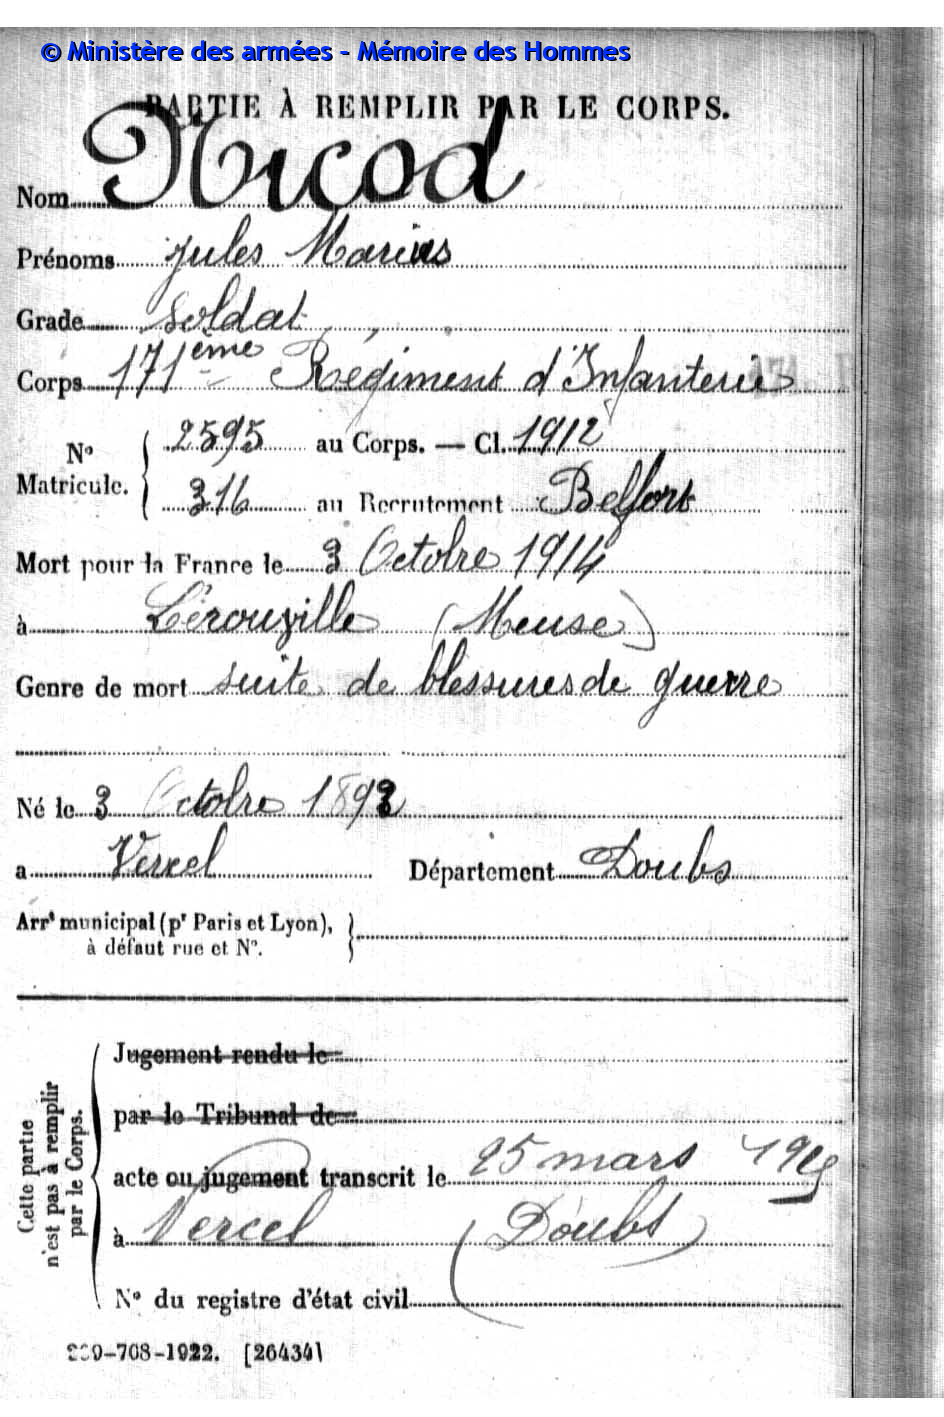 © Ministère des armées - Mémoire des Hommes
PARTIE À REMPLIR PAR LE CORPS.
Nom Nicod
Prénoms Jules Marius
Grade Soldat
Corps 171ème Régiment d'Infanterie
N° Matricule. { 2595 au Corps. — Cl. 1912
316 au Recrutement Belfort
Mort pour la France le 3 Octobre 1914
à Lérouville (Meuse)
Genre de mort suite de blessures de guerre
Né le 3 Octobre 1892
a Vercel Département Doubs
Arrt municipal (pr Paris et Lyon),
à défaut rue et N°.
Cette partie n'est pas à remplir par le Corps.
Jugement rendu le
par le Tribunal de
acte ou jugement transcrit le 25 mars
à Vercel (Doubs)
N° du registre d'état civil
-708-1922. [26434]